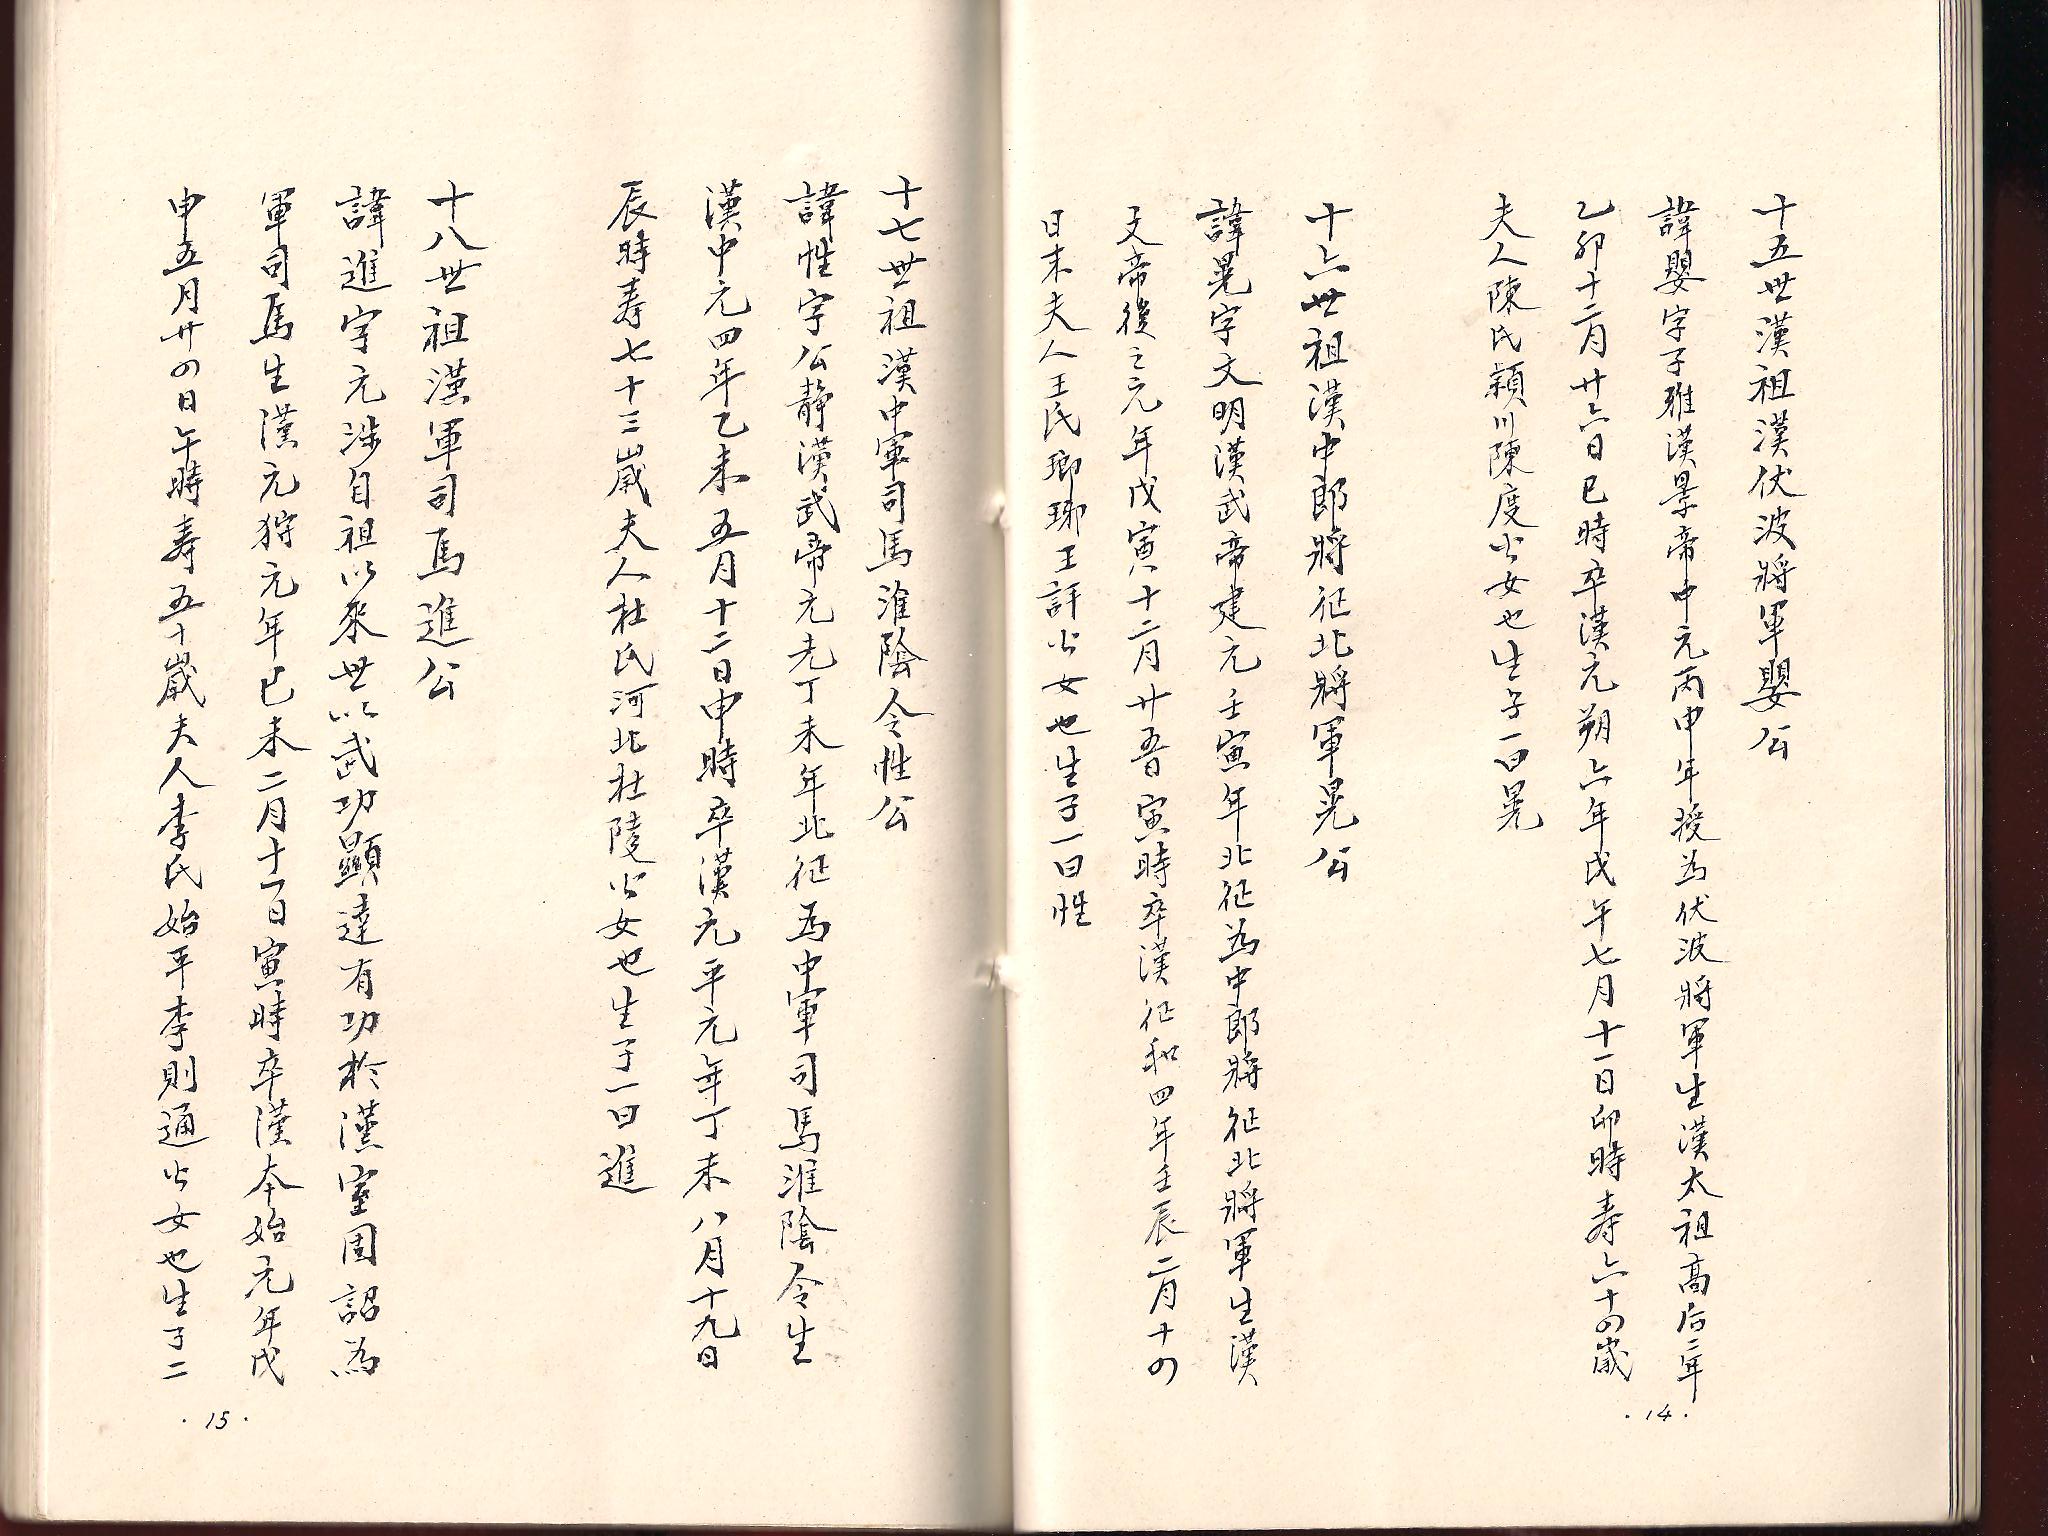 十五世漢祖漢伏波將軍嬰公
諱嬰字子雅漢景帝中元丙申年授為伏波將軍生漢太祖高后二年
乙卯十二月廿六日巳時卒漢元朔六年戊午七月十一日卯時寿六十四歲
夫人陳氏穎川陳度公女也生子一曰晃
十六世祖漢中郎將征北將軍晃公
諱晃字文明漢武帝建元壬寅年北征為中郎將征北將軍生漢
文帝後之元年戊寅十二月廿五日寅時卒漢征和四年壬辰二月十四
日未夫人王氏瑯琊王評公女也生子一曰性
·14·
十七世祖漢中軍司馬淮陰令性公
諱性字公静漢武帝元光丁未年北征為中軍司馬淮陰令生
漢中元四年乙未五月十二日申時卒漢元平元年丁未八月十九日
辰時寿七十三歲夫人杜氏河北杜陵公女也生子一曰進
十八世祖漢軍司馬進公
諱進字元涉自祖以來世以武功顯達有功於漢室因詔為
軍司馬生漢元狩元年已未二月十一日寅時卒漢本始元年戊
申五月廿四日午時寿五十歲夫人李氏始平李則通公女也生子二
·15·